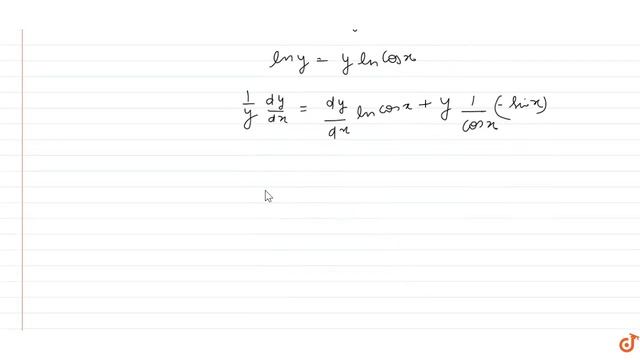 ln y = y ln cos x
1/y dy/dx = dy/dx ln cos x + y 1/cos x (- sin x)